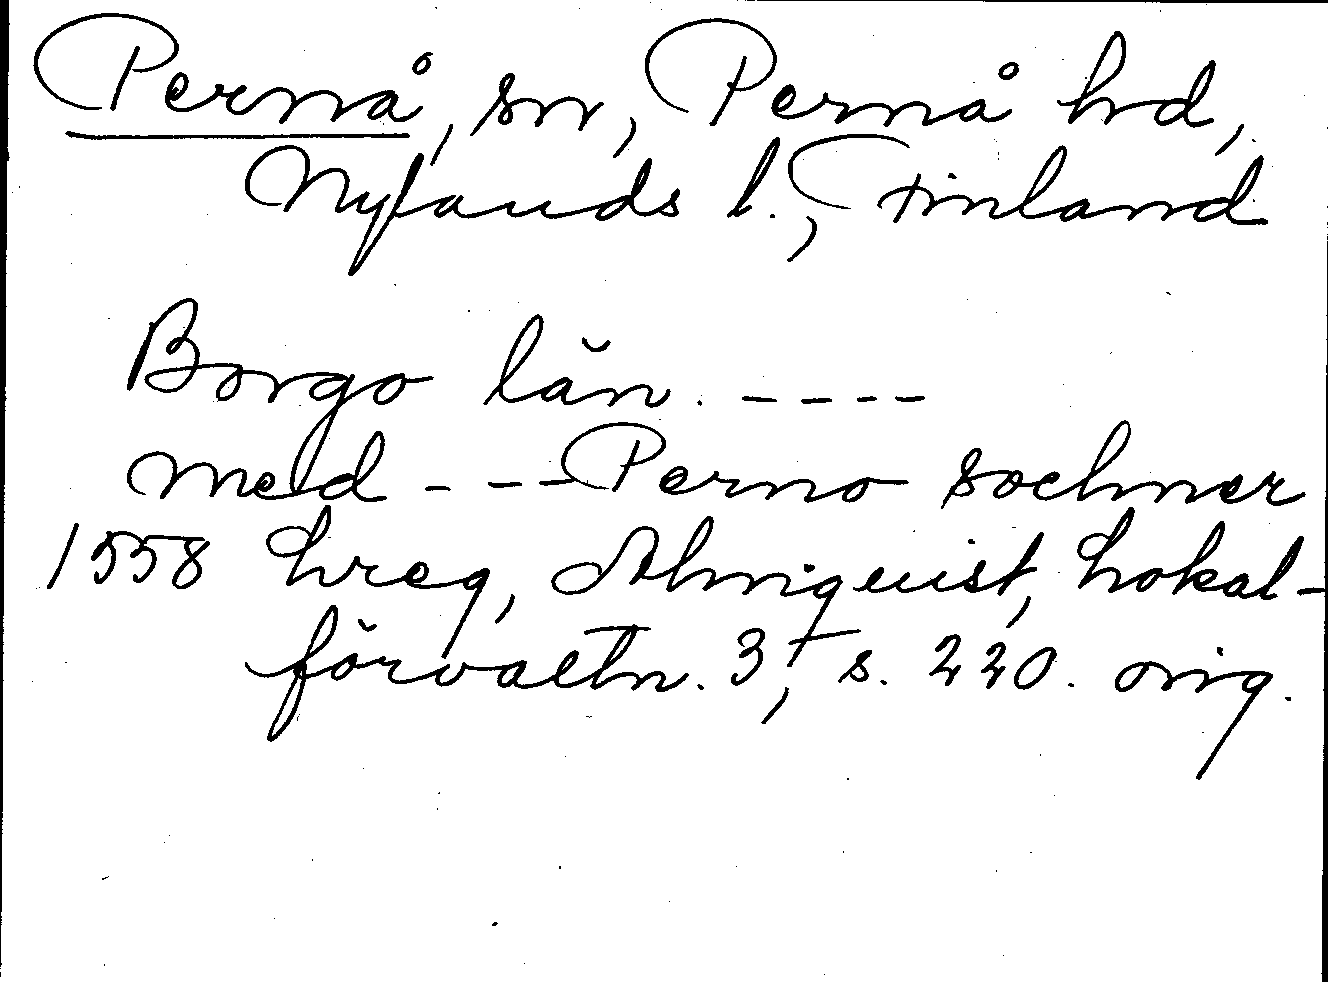 Pernå, sn, Pernå hd,
Nylands l., Finland
Borgo län. ----
med --- Perno sochner
1558 hreg, Almquist, Lokal-
förvaltn. 3, s. 220. orig.